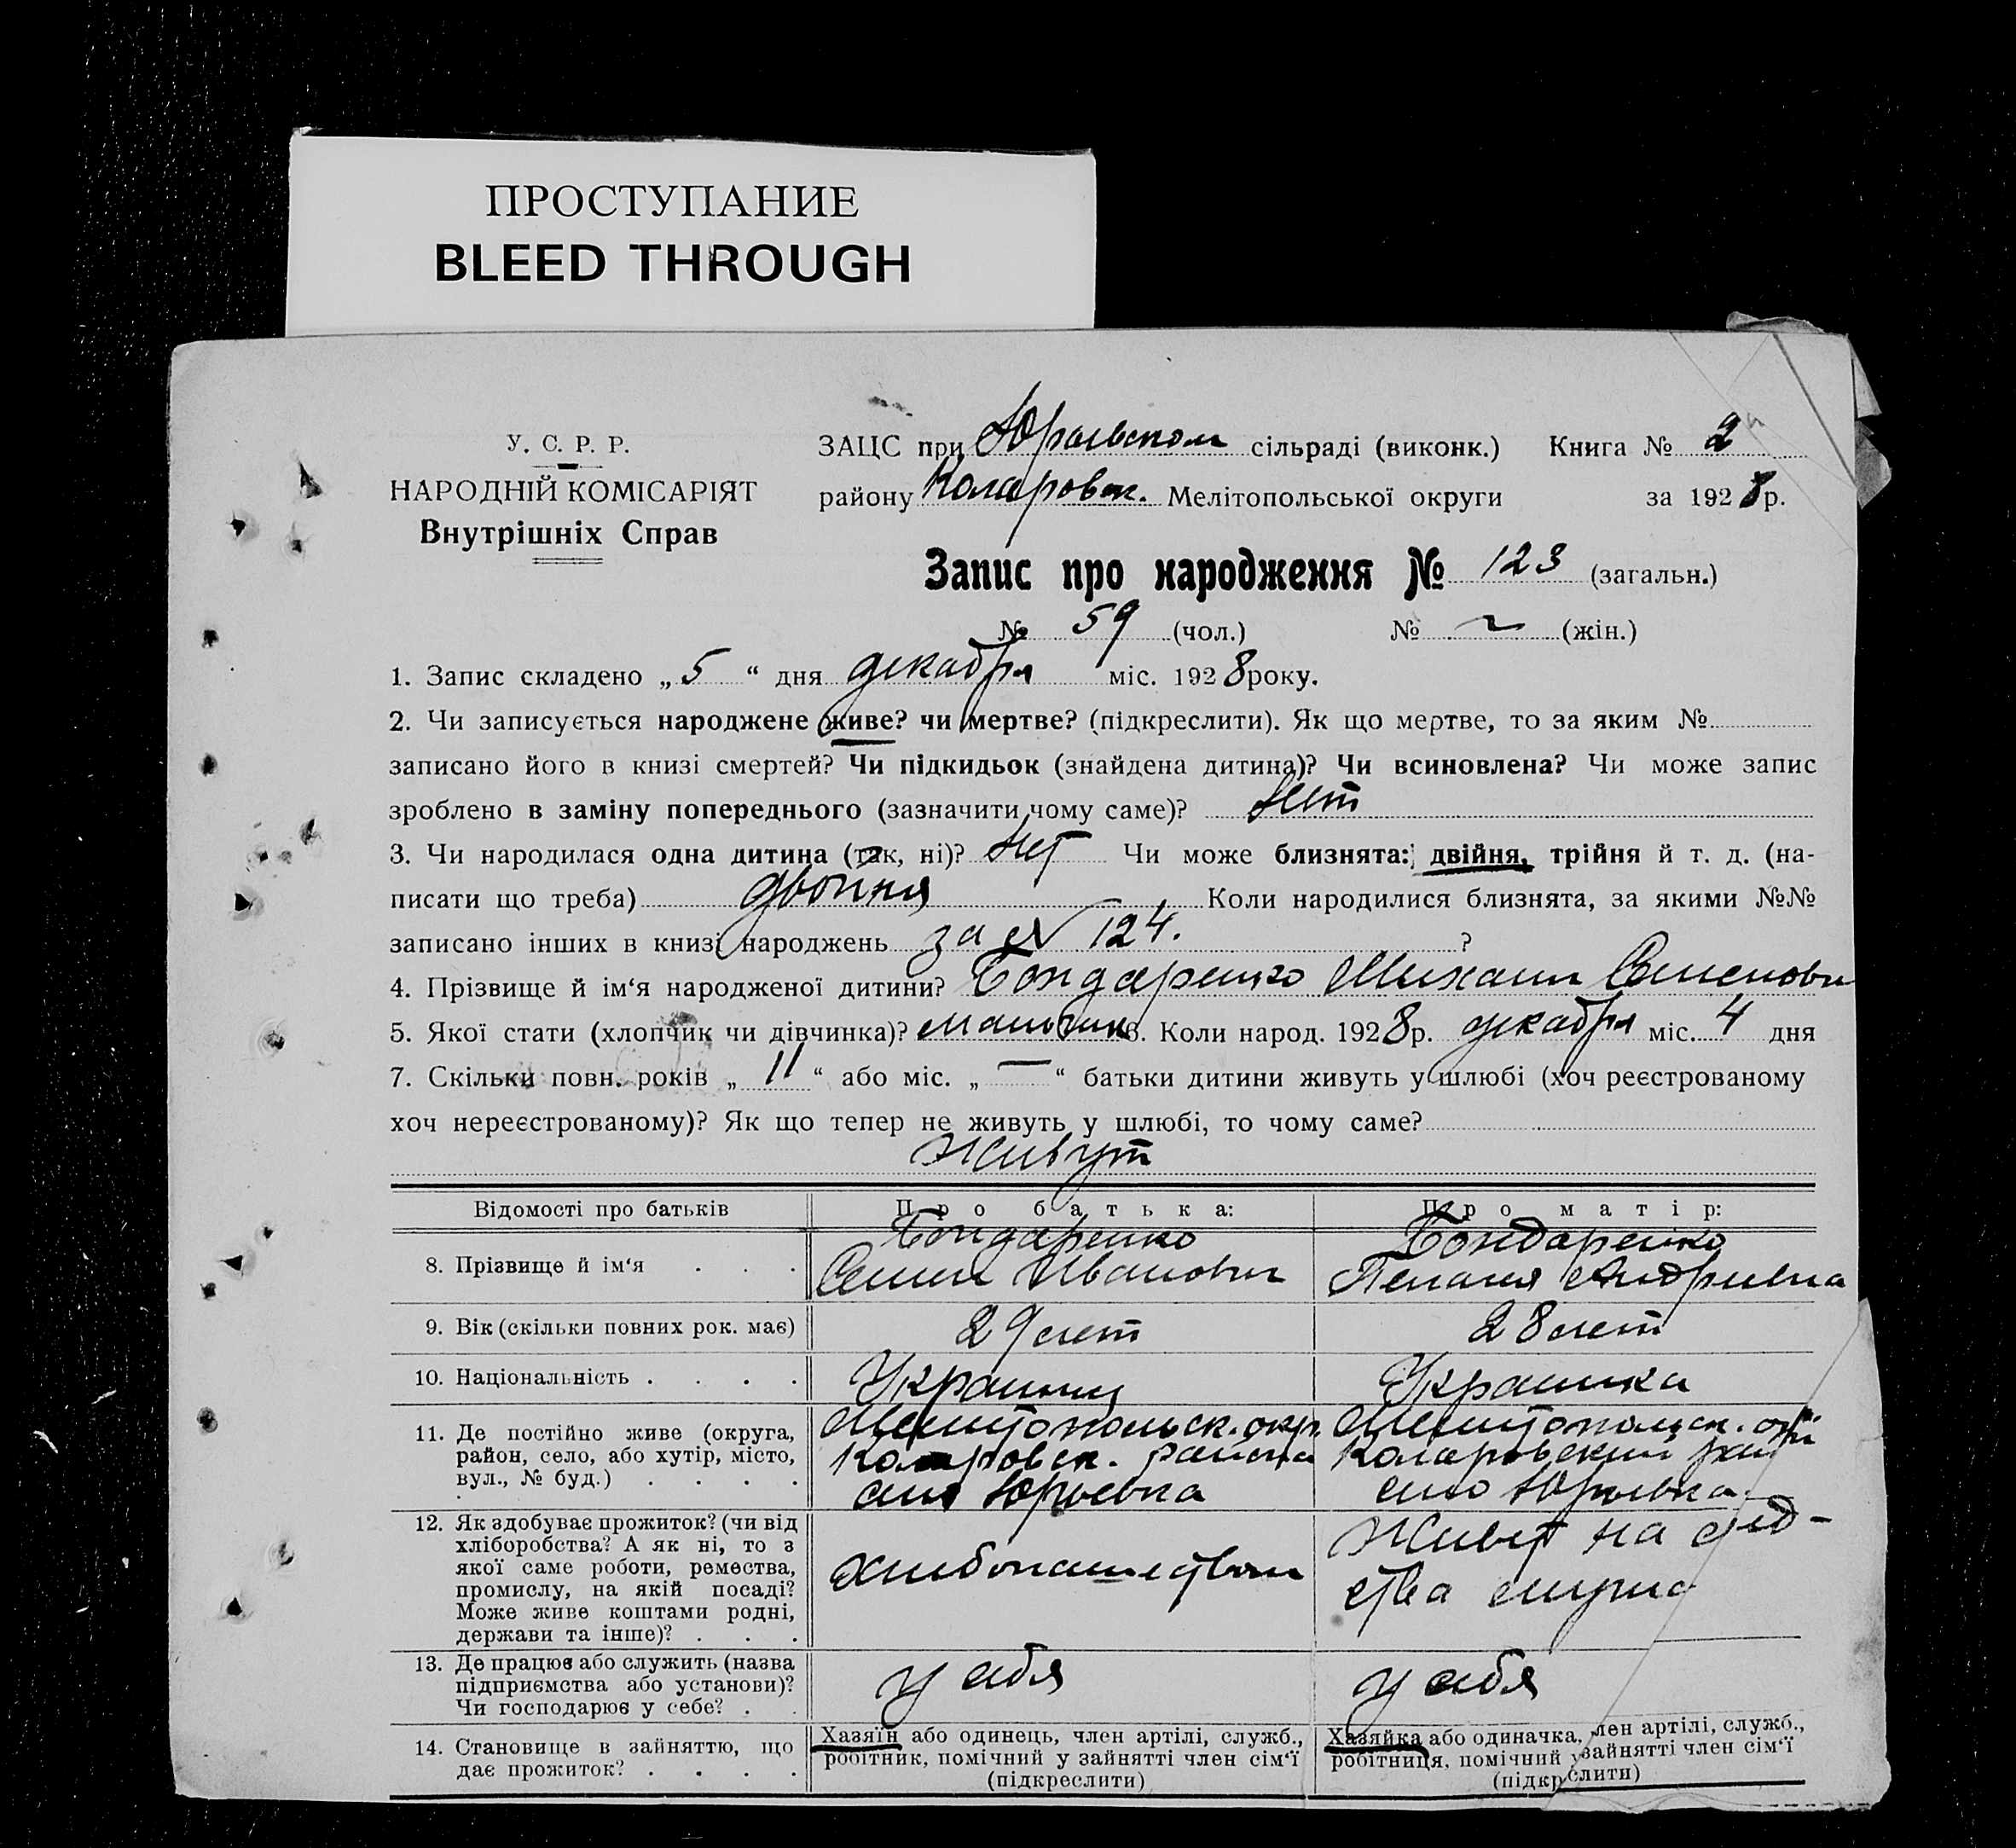 ПРОСТУПАНИЕ
BLEED THROUGH
У. С. Р. Р.
НАРОДНІЙ КОМІСАРІЯТ
Внутрішніх Справ
ЗАЦС при Юрьевском сільраді (виконк.) Книга № 2
району Коларовск. Мелітопольської округи за 1928 р.
Запис про народження № 123 (загальн.)
№ 59 (чол.) № (жін.)
1. Запис складено „5“ дня декабря міс. 1928 року.
2. Чи записується народжене живе? чи мертве? (підкреслити). Як що мертве, то за яким №
записано його в книзі смертей? Чи підкидьок (знайдена дитина)? Чи всиновлена? Чи може запис
зроблено в заміну попереднього (зазначити чому саме)? Нет
3. Чи народилася одна дитина (так, ні)? Нет Чи може близнята: двійня, трійня й т. д. (на-
писати що треба) двойня Коли народилися близнята, за якими №№
записано інших в книзі народжень за № 124. ?
4. Прізвище й ім‘я народженої дитини? Бондаренко Михаил Семенович
5. Якої стати (хлопчик чи дівчинка)? мальчик 6. Коли народ. 1928 р. декабря міс. 4 дня
7. Скільки повн. років „11“ або міс. „—“ батьки дитини живуть у шлюбі (хоч реєстрованому
хоч нереєстрованому)? Як що тепер не живуть у шлюбі, то чому саме?
Живут
Відомості про батьків Про батька: Про матір:
8. Прізвище й ім‘я . . . Бондаренко Семен Иванович Бондаренко Пелагея Андреевна
9. Вік (скільки повних рок. має) 29 лет 28 лет
10. Національність . . . . Украинец Украинка
11. Де постійно живе (округа,
район, село, або хутір, місто,
вул., № буд.) . . . .
Мелитопольск. окр.
Коларовск. района
село Юрьевка
Мелитопольск. окр
Коларовский район
село Юрьевка
12. Як здобуває прожиток? (чи від
хліборобства? А як ні, то з
якої саме роботи, ремества,
промислу, на якій посаді?
Може живе коштами родні,
держави та інше)? . . .
Хлебопашеством
Живет на сред-
ства мужа
13. Де працює або служить (назва
підприємства або установи)?
Чи господарює у себе? . .
у себя
у себя
14. Становище в зайняттю, що
дає прожиток? . . . .
Хазяїн або одинець, член артілі, служб.,
робітник, помічний у зайнятті член сім‘ї
(підкреслити)
Хазяйка або одиначка, член артілі, служб.,
робітниця, помічний у зайнятті член сім‘ї
(підкреслити)